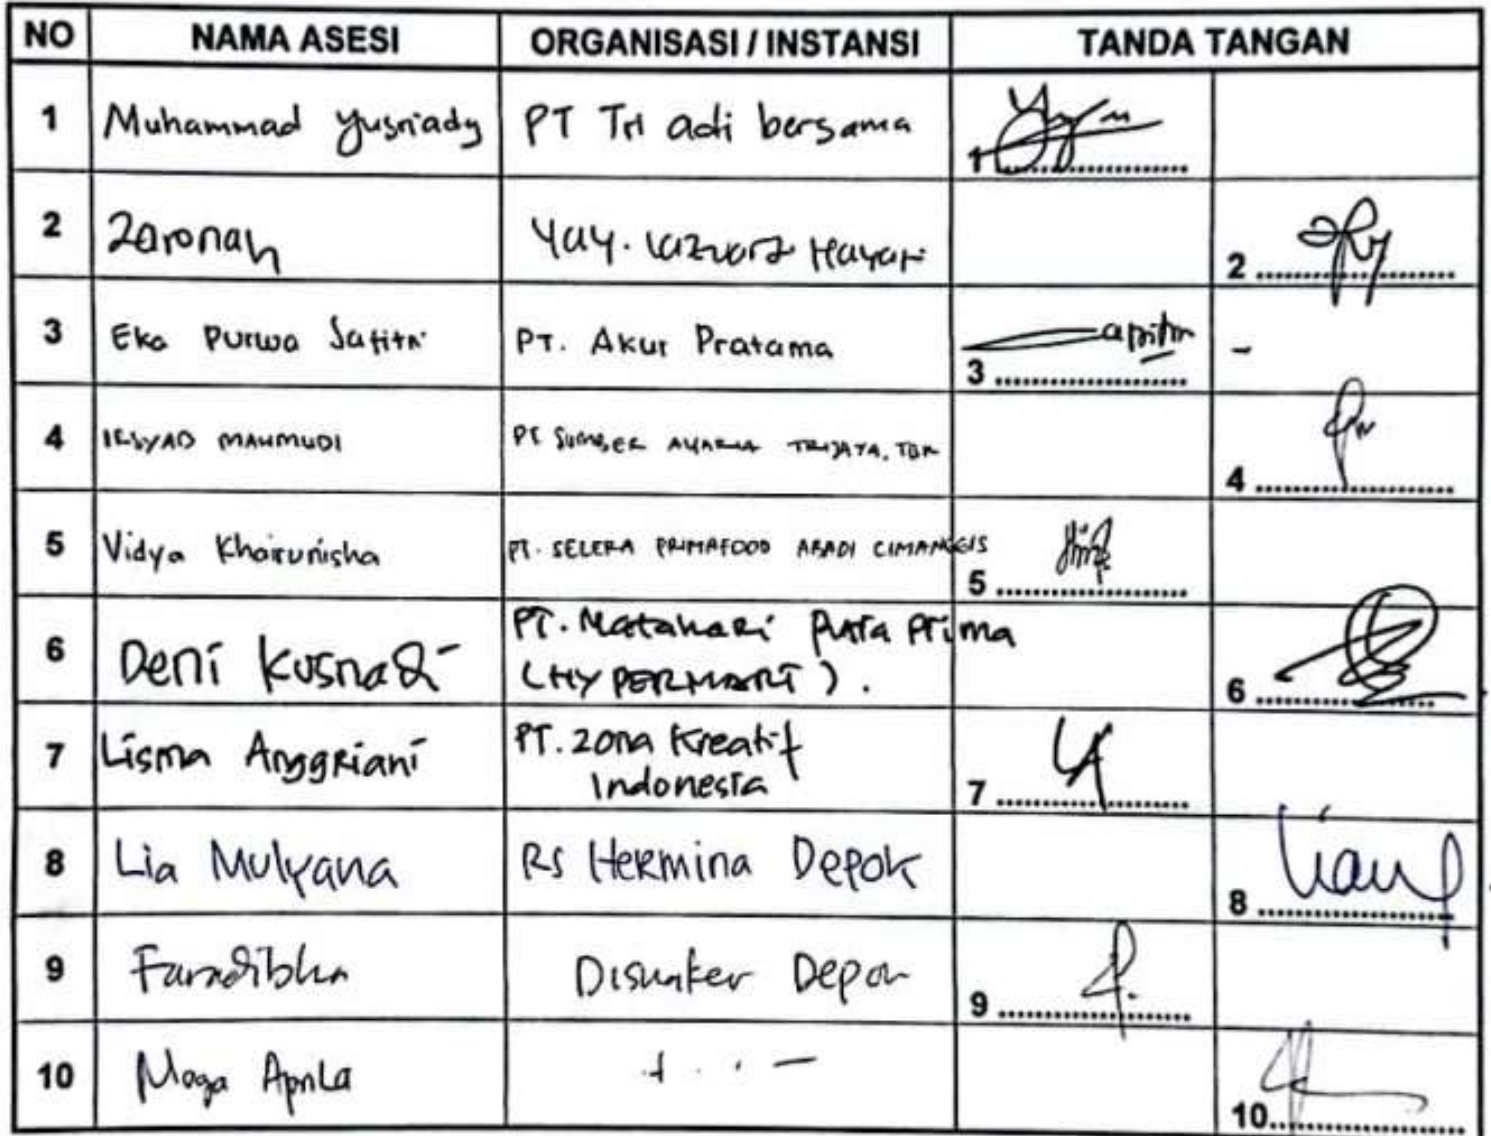 NO NAMA ASESI ORGANISASI / INSTANSI TANDA TANGAN
1 Muhammad Yusriady PT Tri adi bersama 1
2 Zaronah Yay. Hayati 2
3 Eka Purwa Safitri PT. Akur Pratama 3 -
4 IRSYAD MAHMUDI PT SUMBER TRIJAYA, TBK 4
5 Vidya Khairunisha PT. SELERA PRIMAFOOD ABADI CIMANGGIS 5
6 Deni Kusnadi PT. Matahari Putra Prima
(HYPERMART). 6
7 Lisma Anggriani PT. Zona Kreatif
Indonesia 7
8 Lia Mulyana RS Hermina Depok 8
9 Faradibha Disnaker Depok 9
10 Moga Aprila 10